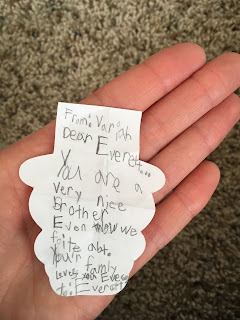 From: Variah
Dear Everett...
You are a
very nice
Brother
Even thow we
fite abt.
Your famly
Love, you Everett
to: Everett